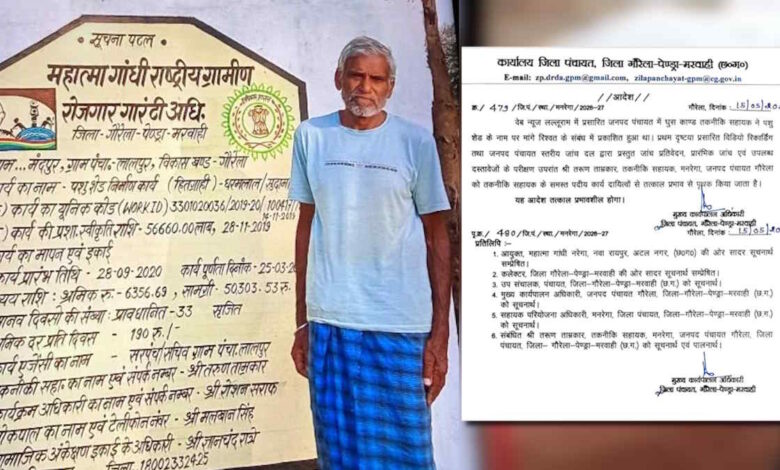 सूचना पटल
महात्मा गांधी राष्ट्रीय ग्रामीण
रोजगार गारंटी अधि.
जिला-गौरेला-पेण्ड्रा-मरवाही
ग्राम... नंदपुर, ग्राम पंचा.-लालपुर, विकास खण्ड-गौरेला
कार्य का नाम - पशु शेड निर्माण कार्य (हितग्राही)-धरमलाल/
कार्य का यूनिक कोड (WORK ID) 3301020036/2019-20/
14-11-2019
की प्रशा. स्वीकृति राशि - 56660.00लाख, 28-11-2019
कार्य का मापन एवं इकाई
कार्य प्रारंभ तिथि - 28-09-2020 कार्य पूर्णता दिनांक-25-03-20
व्यय राशि: श्रमिक रु. - 6356.69, सामग्री - 50,303.53 रु.
मानव दिवसों की संख्या: प्रावधानित-33 सृजित
दैनिक दर प्रति दिवस - 190 रु./-
कार्य एजेंसी का नाम - सरपंच/सचिव ग्राम पंचा. लालपुर
तकनीकी सहा. का नाम एवं संपर्क नम्बर - श्री तरुण ताम्रकार
कार्यक्रम अधिकारी का नाम एवं संपर्क नम्बर - श्री रोशन सराफ
लोकपाल का नाम एवं टेलीफोन नंबर - श्री मलबान सिंह
सामाजिक अंकेक्षण इकाई के अधिकारी - श्री ज्ञानचंद रात्रे
18002332425
कार्यालय जिला पंचायत, जिला गौरेला-पेण्ड्रा-मरवाही (छ०ग०)
E-mail: zp.drda.gpm@gmail.com, zilapanchayat-gpm@cg.gov.in
//आदेश//
क्र./ 479 /जि.पं./स्था./मनरेगा/2026-27 गौरेला, दिनांक : 15/05/20
वेब न्यूज लल्लूराम में प्रसारित जनपद पंचायत में घुस काण्ड तकनीकि सहायक ने पशु
शेड के नाम पर मांगे रिश्वत के संबंध में प्रकाशित हुआ था। प्रथम दृष्टया प्रसारित विडियो रिकार्डिंग
तथा जनपद पंचायत स्तरीय जांच दल द्वारा प्रस्तुत जांच प्रतिवेदन, प्रारंभिक जांच एवं उपलब्ध
दस्तावेजों के परीक्षण उपरांत श्री तरूण ताम्रकार, तकनीकि सहायक, मनरेगा, जनपद पंचायत गौरेला
को तकनीकि सहायक के समस्त पदीय कार्य दायित्वों से तत्काल प्रभाव से पृथक किया जाता है।
यह आदेश तत्काल प्रभावशील होगा।
मुख्य कार्यपालन अधिकारी
जिला पंचायत, गौरेला-पेण्ड्रा-मरवाही
पृ.क्र./ 480 /जि.पं./स्था./मनरेगा/2026-27 गौरेला, दिनांक : 15/05/20
प्रतिलिपि :-
1. आयुक्त, महात्मा गांधी नरेगा, नवा रायपुर, अटल नगर, (छ०ग०) की ओर सादर सूचनार्थ
सम्प्रेषित।
2. कलेक्टर, जिला गौरेला-पेण्ड्रा-मरवाही की ओर सादर सूचनार्थ सम्प्रेषित।
3. उप संचालक, पंचायत, जिला पंचायत, जिला गौरेला-पेण्ड्रा-मरवाही (छ.ग.) को सूचनार्थ।
4. मुख्य कार्यपालन अधिकारी, जनपद पंचायत गौरेला, जिला गौरेला-पेण्ड्रा-मरवाही (छ.ग.)
को सूचनार्थ।
5. सहायक परियोजना अधिकारी, मनरेगा, जिला पंचायत, जिला गौरेला-पेण्ड्रा-मरवाही (छ.ग.)
को सूचनार्थ।
6. संबंधित श्री तरूण ताम्रकार, तकनीकि सहायक, मनरेगा, जनपद पंचायत गौरेला, जिला
पंचायत, जिला- गौरेला-पेण्ड्रा-मरवाही (छ.ग.) को सूचनार्थ एवं पालनार्थ।
मुख्य कार्यपालन अधिकारी
जिला पंचायत, गौरेला-पेण्ड्रा-मरवाही